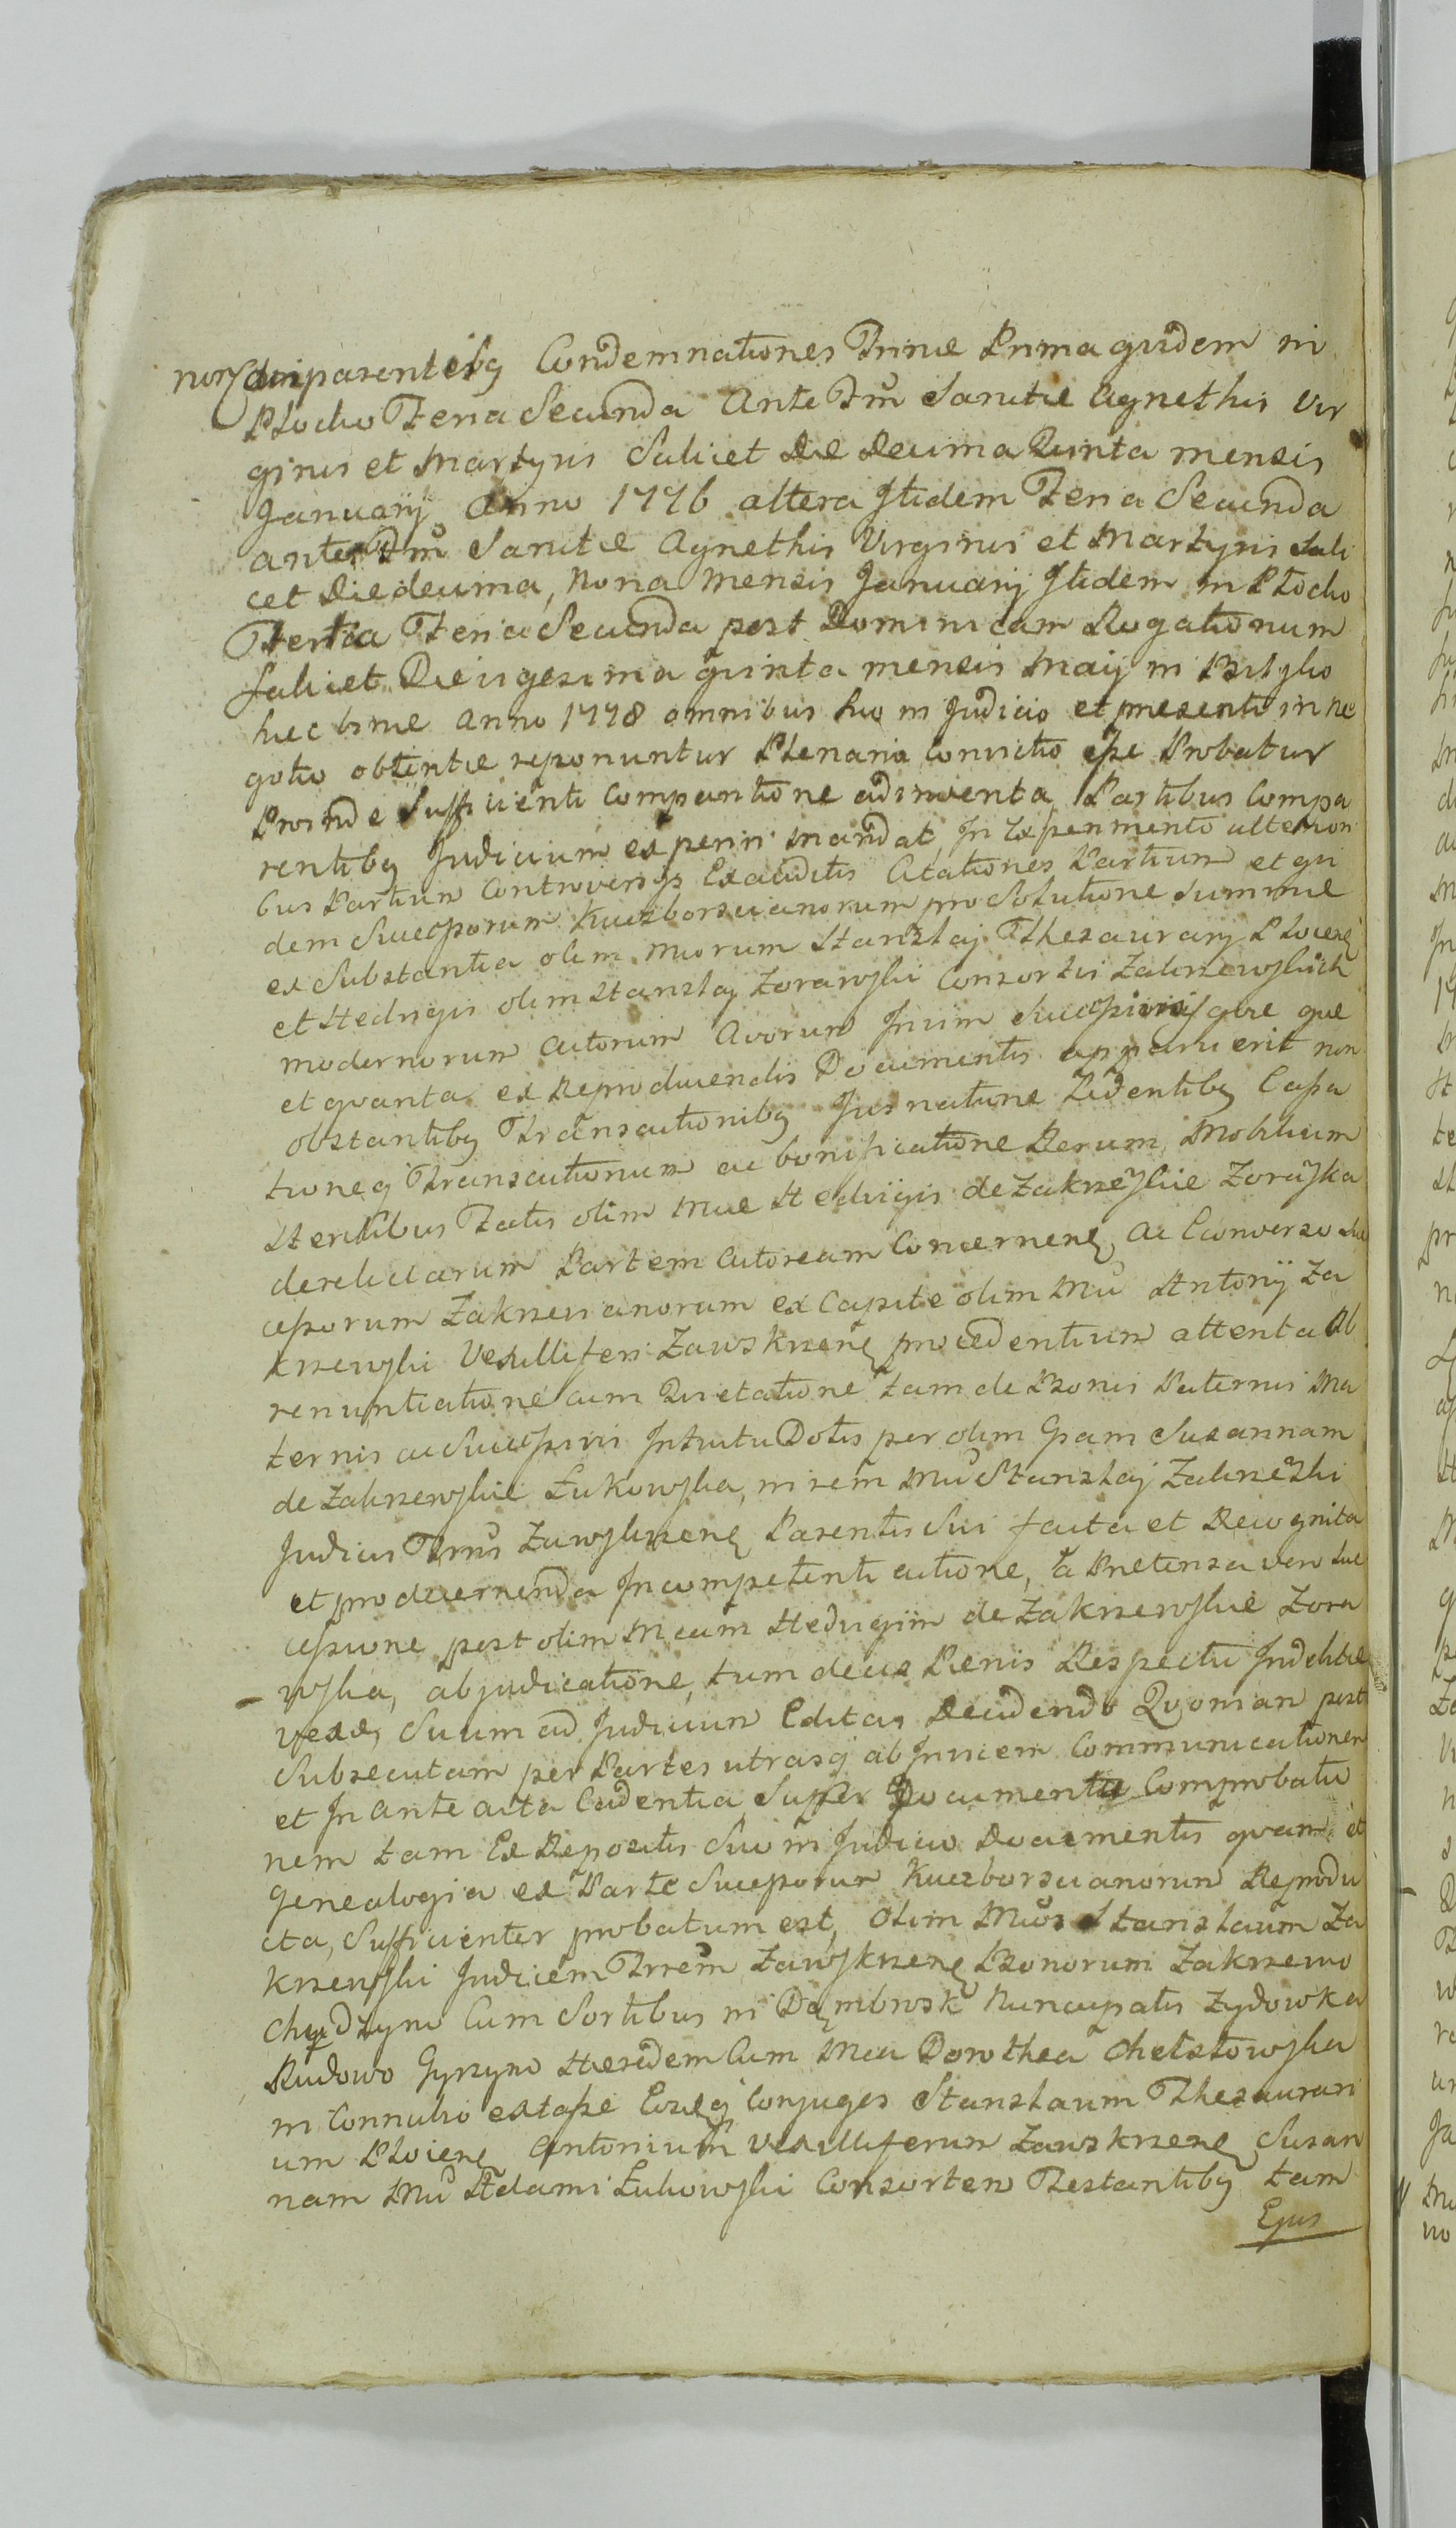 non Comparentibq Condemnationes Trinæ Prima quidem in
Plocko Feria Secunda Ante Ftũ Sanctæ Agnethis Vir
ginis et Martyris Scilicet Die Decima Quinta mensis
Januarij Anno 1776 altera Itidem Feria Secunda
ante Ftũ Sanctæ Agnethis Virginis et Martyris Scili
cet Die decima, nona Mensis Januarij Itidem in Plocko
Tertia Feria Secunda post Dominicam Rogationum
scilicet Die vigesima quinta mensis Maij in
hæc binæ Anno 1778 omnibus hoc in Judicio et præsenti in ne
gotio obtentæ reponuntur Plenaria Convictio esse Probatur
Proinde Sufficienti Comparitione adinventa, Partibus Compa
rentibq Judicium experiri mandat, In Experimento ulteriori
bus Partium Controversijs Exauditis Citationes Partium et qui
dem Successorum Kuczborscianorum pro Solutione Summæ
ex Substantia olim Mcorum Stanislaj Thesaurarij Plocensq
et Hedvigis olim Stanislaj Zorawski Consortis Zakrzewskich
modernorum Actorum Avorum Jurium Successivis quæ
et quanta ex Reproducendis Documentis apparuerit non
obstantibq Transactionibq Jus naturæ Lædentibq Cassa
tioneq Transactionum ac bonificatione Rerum, Mobilium
Sterilibus Fatis olim Mcæ Hedvigis de Zakrzewskie Zorawska
derelictarum Partem Actoream Concernenq, ac Converso Suc
cessorum Zakrzescianorum ex Capite olim Mci Antonij Za
krzewski Vexilliferi Zawskrzenq procedentium attenta Ab
renuntiatione cum Quietatione tam de Bonis Paternis Ma
ternis ac Successivis Intuitu Dotis per olim Gsam Susannam
de Zakrzewskie Łukowska, in rem Mci Stanislaj Zakrzewski
Judicis Trris Zawskrzenq Parentis Sui facta et Recognita
et pro decernenda Incompetenti actione, a Prætensa vero Suc
cessione post olim Mcam Hedvigim de Zakrzewskie Zora
wska, abjudicatione, tum de Pænis Respectu Indebitæ
vexæ, Suum ad Judicium Editas Decidendo Quoniam post
Subsecutam per Partes utrasq ab Invicem Communicationem
et In ante acta Cadentia Super Documentis Comprobatio
nem tam Ex Repositis Suo in Judicio Documentis quam et
Genealogia ex Parte Successorum Kuczborscianorum Reprodu
cta, Sufficienter probatum est, Olim Mcum Stanislaum Za
krzewski Judicem Trrem Zawskrzenq Bonorum Zakrzewo
Chądzyno Cum Sortibus in Dąmbrosk Nuncupatis Zydowka
Rudowo Gyrzyno Hæredem Cum Mca Dorothea Chelstowska
in Connubio extasse Eosdeq Conjuges Stanislaum Thesaurari
um Plocienq Antonium Vexilliferum Zawskrzenq Susan
nam Mci Adami Łukowski Consortem Testantibq tam
Ejus